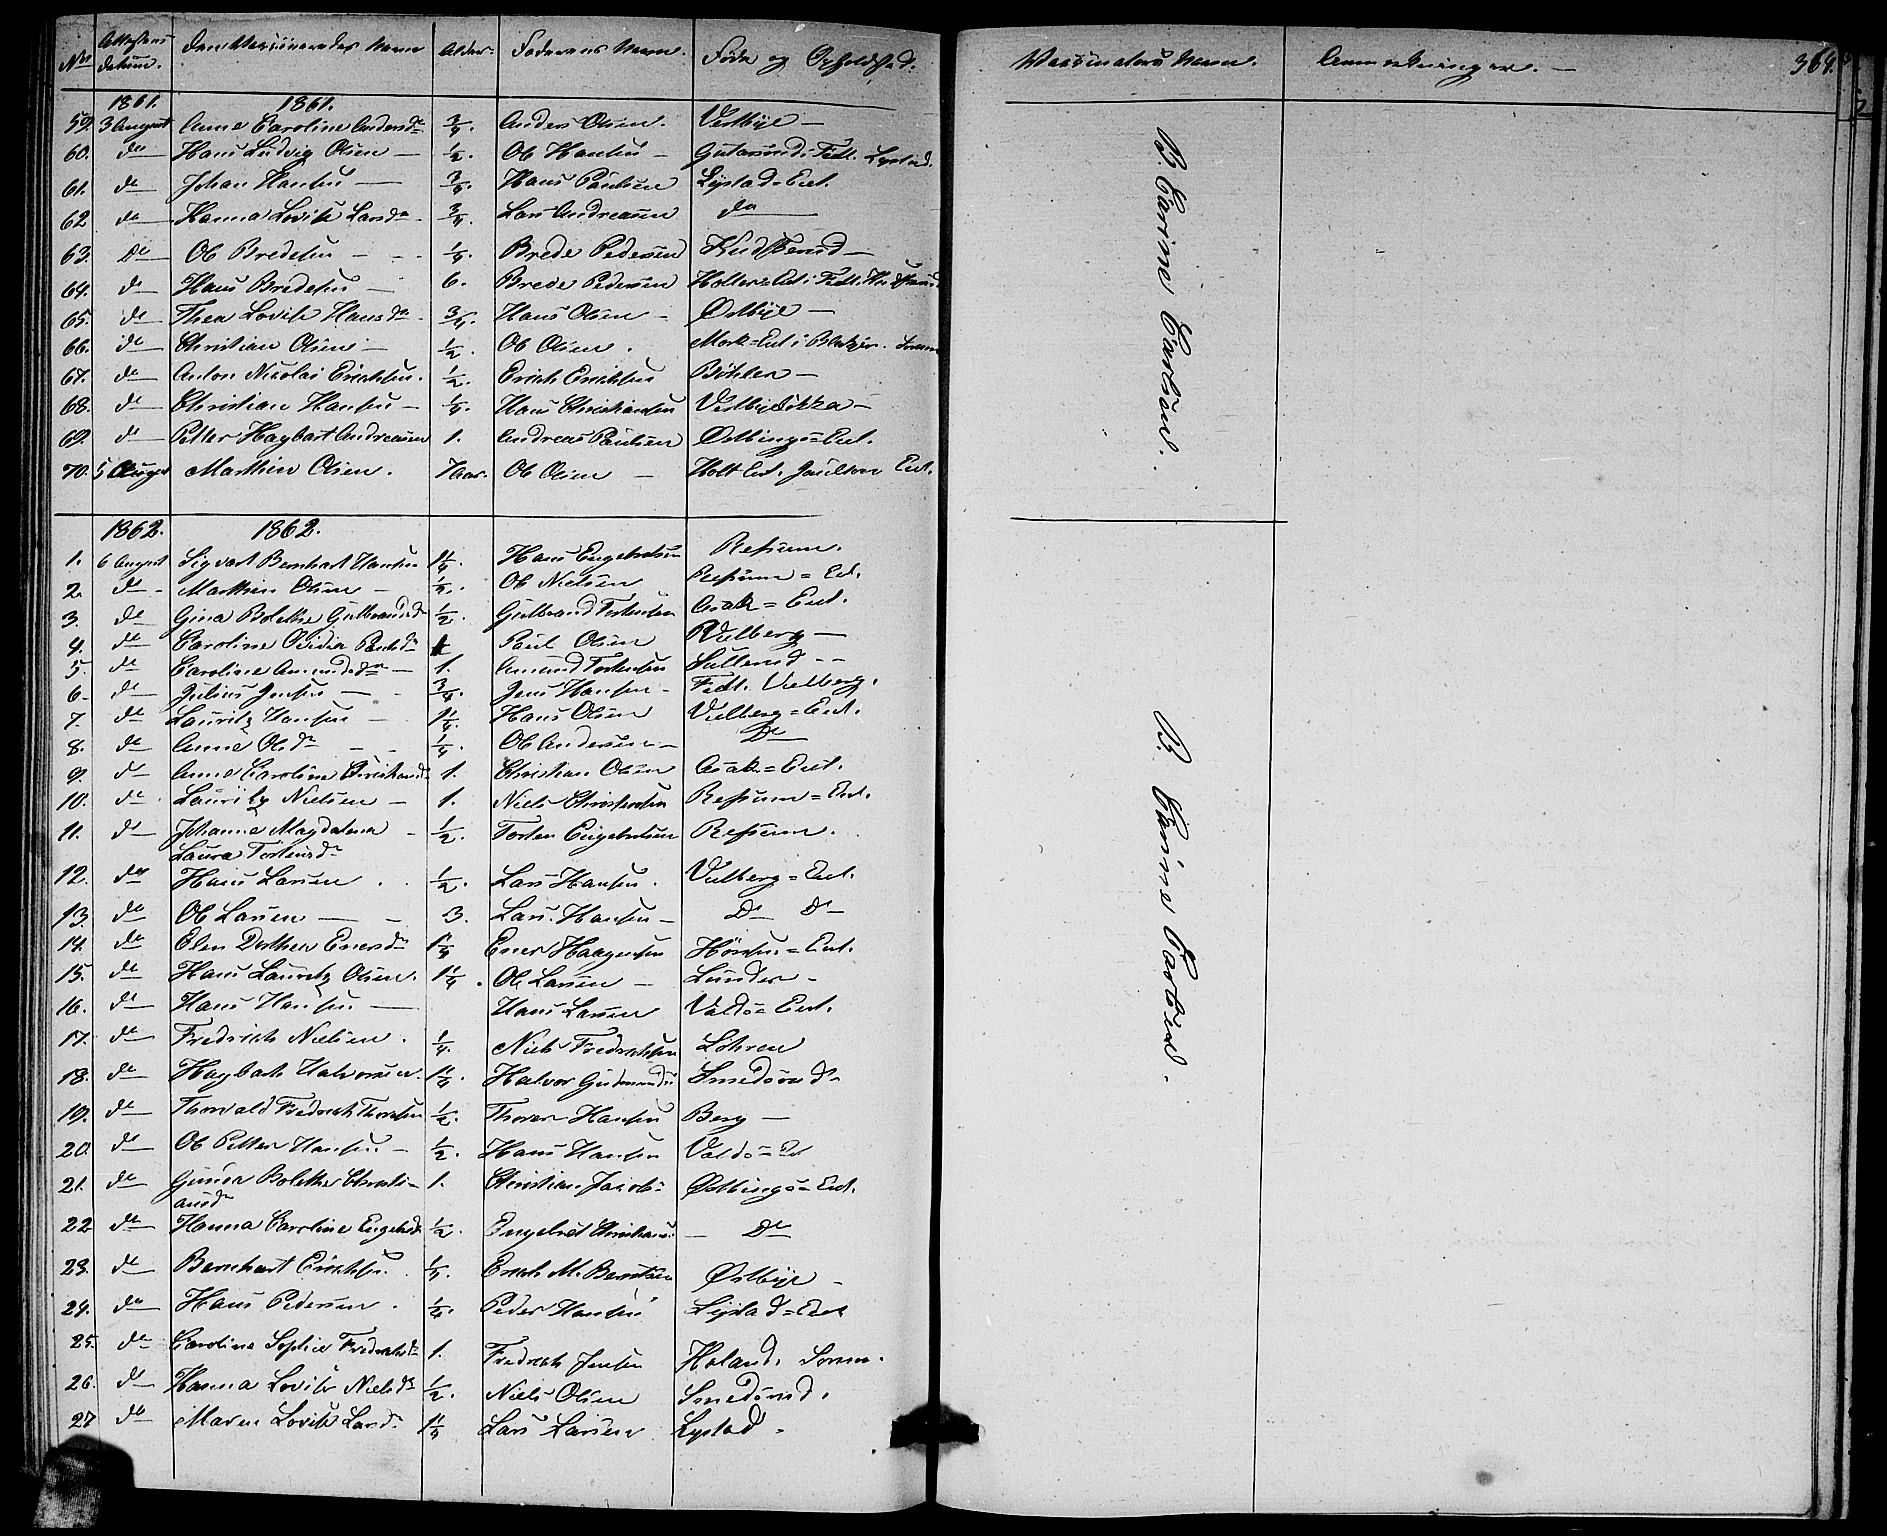 No Attestens datum. Den Vaccineredes Navn Alder. Faderens Navn. Føde og Opholdsted. Vaccinateurs Navn. Anmerkninger. — 364.
1861. 1861.
59. 3 August Anne Caroline Andersdr 3/4. Anders Olsen. Vestbye —
60. do Hans Ludvig Olsen — 1/2. Ole Hansen — Fedt. Lystad.
61. do Johan Hansen — 3/4. Hans Paulsen Lystad=Eiet.
62 do Hanna Lovise Larsdr 3/4. Lars Andreasen do
63. Do Ole Bredesen 1/4. Brede Pedersen
64. do Hans Bredesen 6. Brede Pedersen Holter=Eiet i Fedt.
65. do Thea Lovise Hansdr 3/4. Hans Olsen — Østbye —
66. do Christian Olsen — 1/2. Ole Olsen. Mork=Eiet i Blakjer.
67. do Anton Nicolai Erichsen. 1/2. Erich Erichsen Bøhler —
68. do Christian Hansen — 1/4. Hans Christiansen
69. do Petter Hagbart Andreasen 1. Andreas Paulsen Østbing=Eiet.
70. 5 August Marthin Olsen. 7 Aar. Ole Olsen — Holt Eiet.
B. Carine Carlsen.
1862. 1862.
1. 6 August Sigvart Bernhart Hansen 1 1/4. Hans Engebretsen Refsum.
2. do Marthin Olsen — 1/2. Ole Nielsen Refsum=Eiet.
3. do Gina Bolethe Gulbrandsdr 1/2. Gulbrand Torstensen Asak=Eiet.
4. do Caroline Paulsdr Paul Olsen Vilberg —
5. do Caroline Amundsdr — 1. Amund Torstensen
6. do Julius Jensen — 3/4. Jens Hansen — Fedt. Vilberg.
7. do Lauritz Hansen — 1 1/4. Hans Olsen Vilberg=Eiet.
8. do Anne Olsdr 1/4. Ole Andersen — Do
9. do Anne Caroline Christiansdr 1. Christian Olsen Asak=Eiet.
10. do Lauritz Nielsen — 1. Niels Christensen Refsum=Eiet.
11. do Johanne Magdalena 1/2. Torsten Engebretsen Refsum.
Laura Torstensdr
12. do Hans Larsen 1/2. Lars Hansen. Vilberg=Eiet.
13. do Ole Larsen — 3. Lars Hansen — Do Do
14. do Elen Dorthea Enersdr 1 1/4 Ener Haagensen Eiet.
15. do Hans Lauritz Olsen. 1 1/4. Ole Larsen — Lunder —
16. do Hans Hansen — Hans Larsen Valdø=Eiet.
17. do Fredrich Nielsen. 1/4. Niels Fredrichsen Lohren
18. do Hagbart Halvorsen 1 1/4. Halvor Gudmunds Smedsrud —
19. do Thorvald Fredrich Thorersen 1/2. Thorer Hansen Berg —
20. do Ole Petter Hansen — 1/2. Hans Hansen Valdø=Eiet
21. do Gunda Bolethe Christi- 1. Christian Jacobs= Østbing=Eiet.
ansdr
22 do Hanna Caroline Engebrdr 1/2. Engebret Christians. Do
23. do Bernhart Erichsen 1/4. Erich M. Berntsen Østbye —
24. do Hans Pedersen. 1/4. Peder Hansen Lystad=Eiet
25. do Caroline Sophie Fredrichsdr 1. Fredrich Jensen Høland.
26. do Hanna Lovise Nielsdr 1/2. Niels Olsen Smedsrud.
27 do Maren Lovise Larsdr 1 1/4 Lars Larsen Lystad.
B. Carine Carlsen.